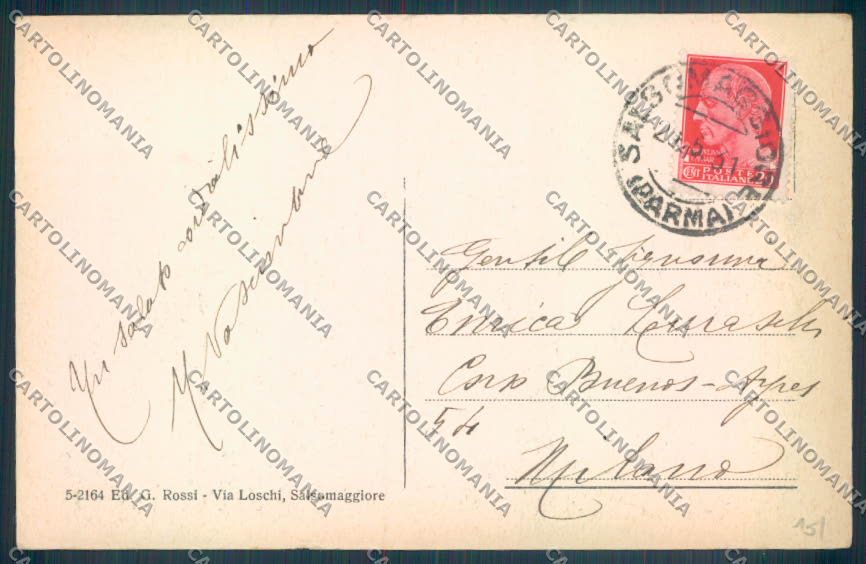 Un saluto cordialissimo
SALSOMAGGIORE
(PARMA)
POSTE
ITALIANE
CENT 20
Gentil Signorina
Enrica
Corso Buenos-Ayres
54
Milano
5-2164 Ed. G. Rossi - Via Loschi, Salsomaggiore
15/
CARTOLINOMANIA